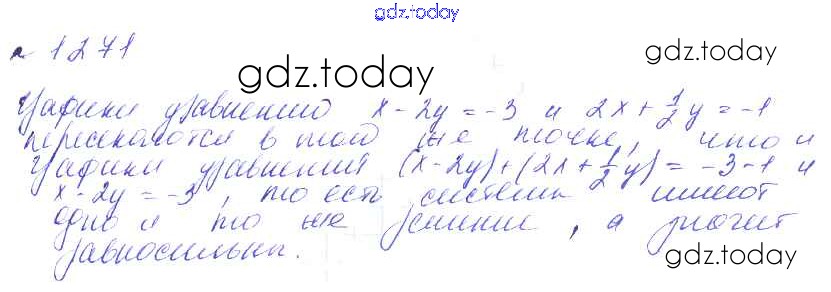 gdz.today
№ 1271
gdz.today
gdz.today
Графики уравнений x - 2y = -3 и 2x + 1/2 y = -1
пересекаются в той же точке, что и
графики уравнения (x - 2y) + (2x + 1/2 y) = -3 - 1 и
x - 2y = -3, то есть системы имеют
одно и то же решение, а значит
равносильны.
gdz.today
gdz.today